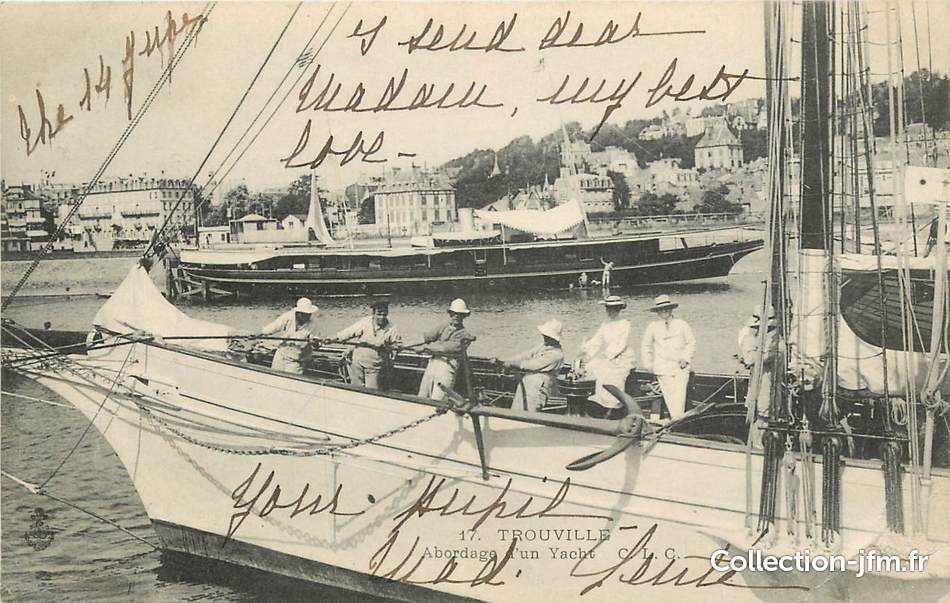 the 14 june
I send dear
Madam, my best
love -
Your pupil -
17. TROUVILLE
Abordage d'un Yacht C. L. C.
Mad.
Collection-jfm.fr